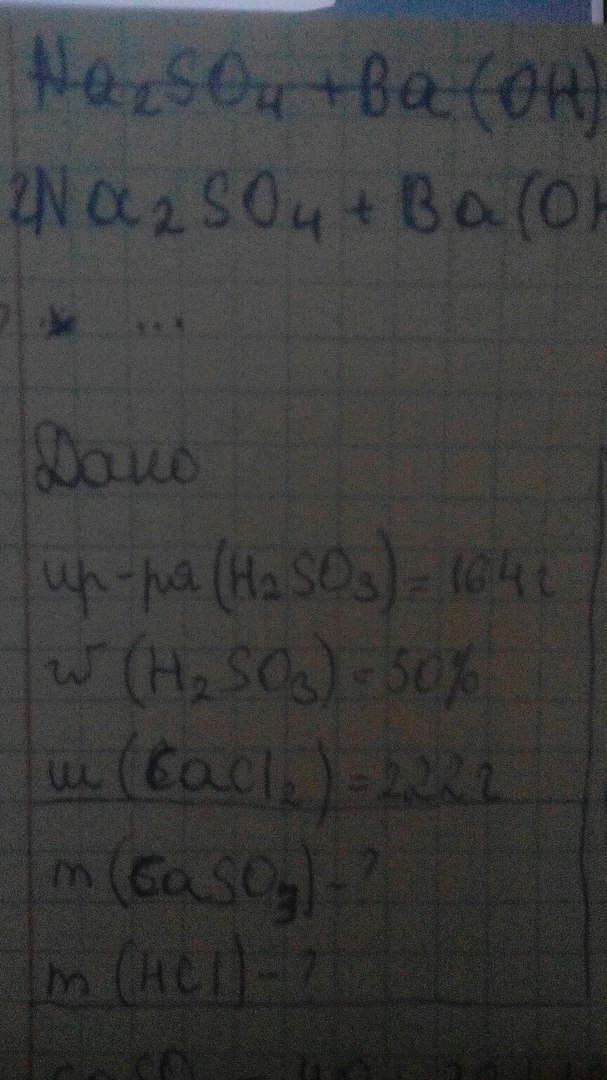 Na₂SO₄ + Ba(OH)
2Na₂SO₄ + Ba(OH
...
Дано
mр-ра(H₂SO₃) = 164г
w(H₂SO₃) = 50%
m(CaCl₂) = 222г
m(CaSO₃) - ?
m(HCl) - ?